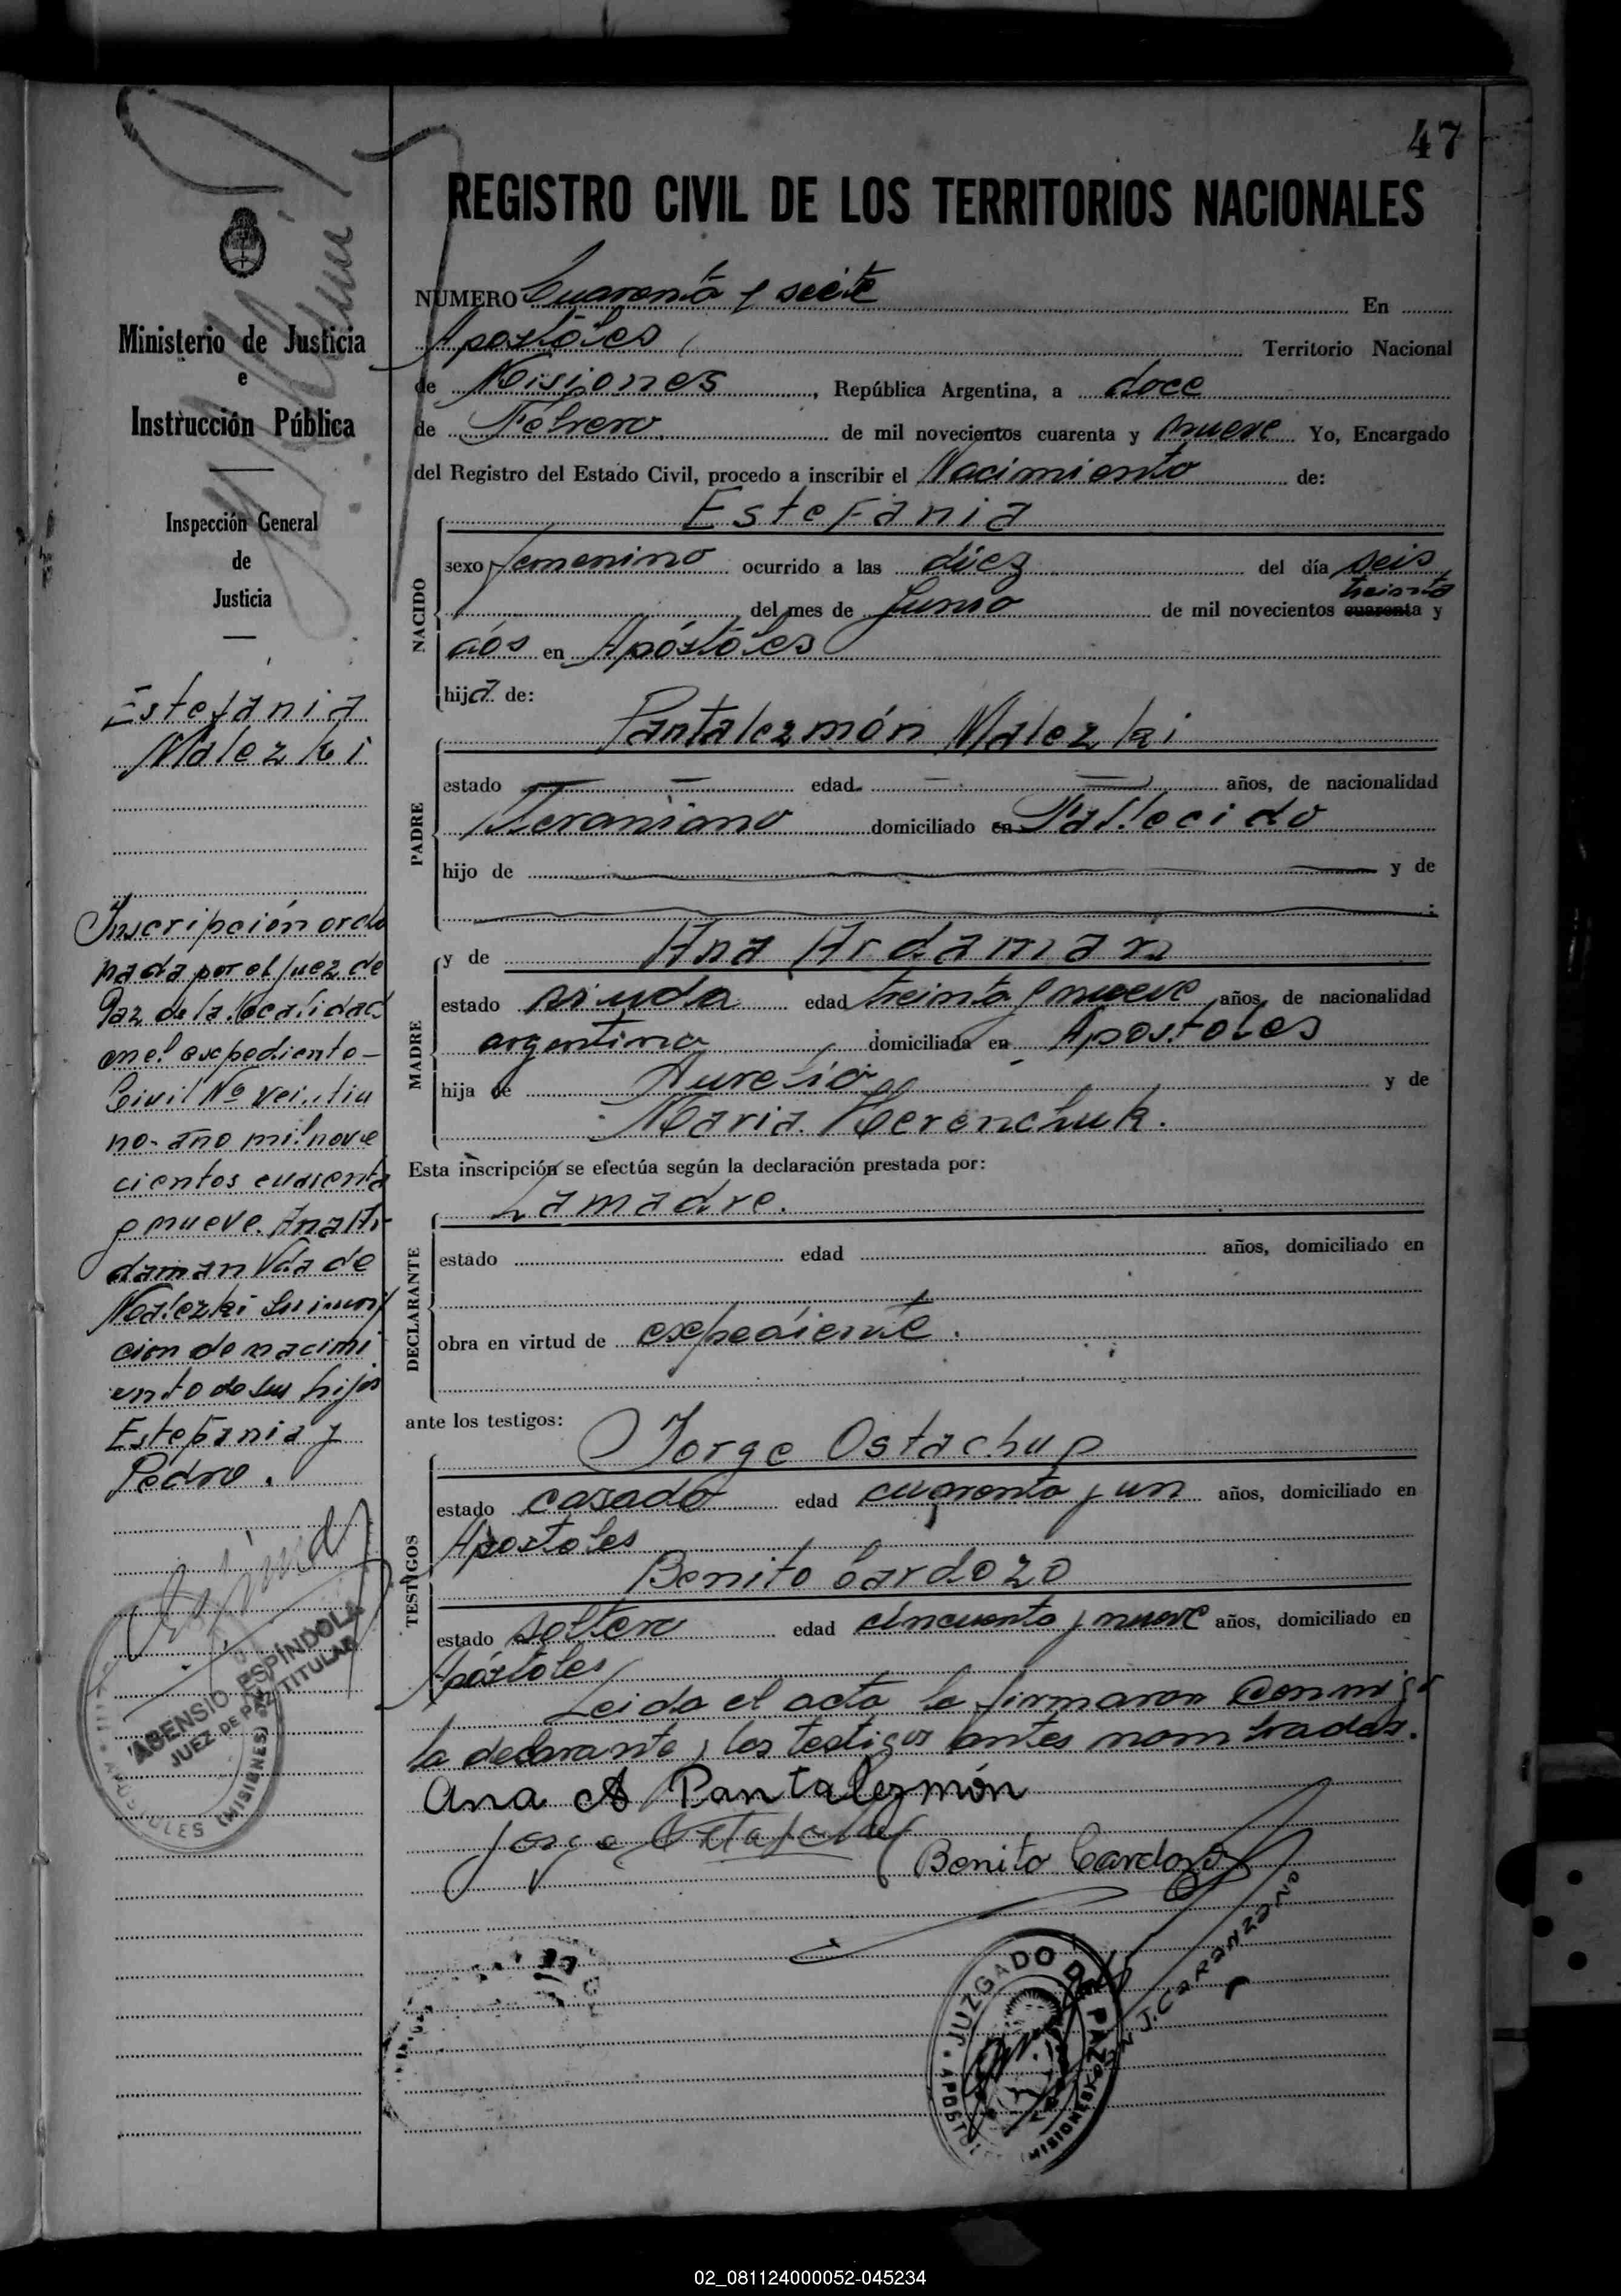 47
REGISTRO CIVIL DE LOS TERRITORIOS NACIONALES
Ministerio de Justicia
e
Instrucción Pública
Inspección General
de
Justicia
Estefania
Malezki
Inscripción orde
nada por el Juez de
Paz de la localidad
en el expediente -
Civil Nº veintiu
no - año mil nove
cientos cuarenta
y nueve. Ana Ar-
daman Vda de
Malezki
cion de nacimi
ento de sus hijos
Estefania y
Pedro.
ASENSIO ESPÍNDOLA
JUEZ DE PAZ TITULAR
(MISIONES)
NUMERO Cuarenta y siete En
Apostoles, Territorio Nacional
de Misiones, República Argentina, a doce
de Febrero. de mil novecientos cuarenta y nueve Yo, Encargado
del Registro del Estado Civil, procedo a inscribir el Nacimiento de:
NACIDO
Estefania
sexo femenino ocurrido a las diez del día seis
treinta
del mes de Junio de mil novecientos cuarenta y
dos en Apóstoles
hija de:
PADRE
Pantalezmón Malezki
estado — edad — años, de nacionalidad
Ucraniano domiciliado en Fallecido
hijo de y de
MADRE
y de Ana Ardaman
estado viuda edad treinta y nueve años, de nacionalidad
argentina domiciliada en Apostoles
hija de Aurelio y de
Maria Kerenchuk.
Esta inscripción se efectúa según la declaración prestada por:
DECLARANTE
La madre.
estado edad años, domiciliado en
obra en virtud de expediente.
ante los testigos:
TESTIGOS
Jorge Ostachup
estado casado edad cuarenta y un años, domiciliado en
Apostoles
Benito Cardozo
estado soltero edad cincuenta y nueve años, domiciliado en
Apóstoles
Leida el acta la firmaron conmigo
la declarante y los testigos antes nombrados.
Ana A Pantalezmón
Jorge
Benito Cardozo
JUZGADO DE PAZ
APÓSTOL
MISIONES
02_081124000052-045234